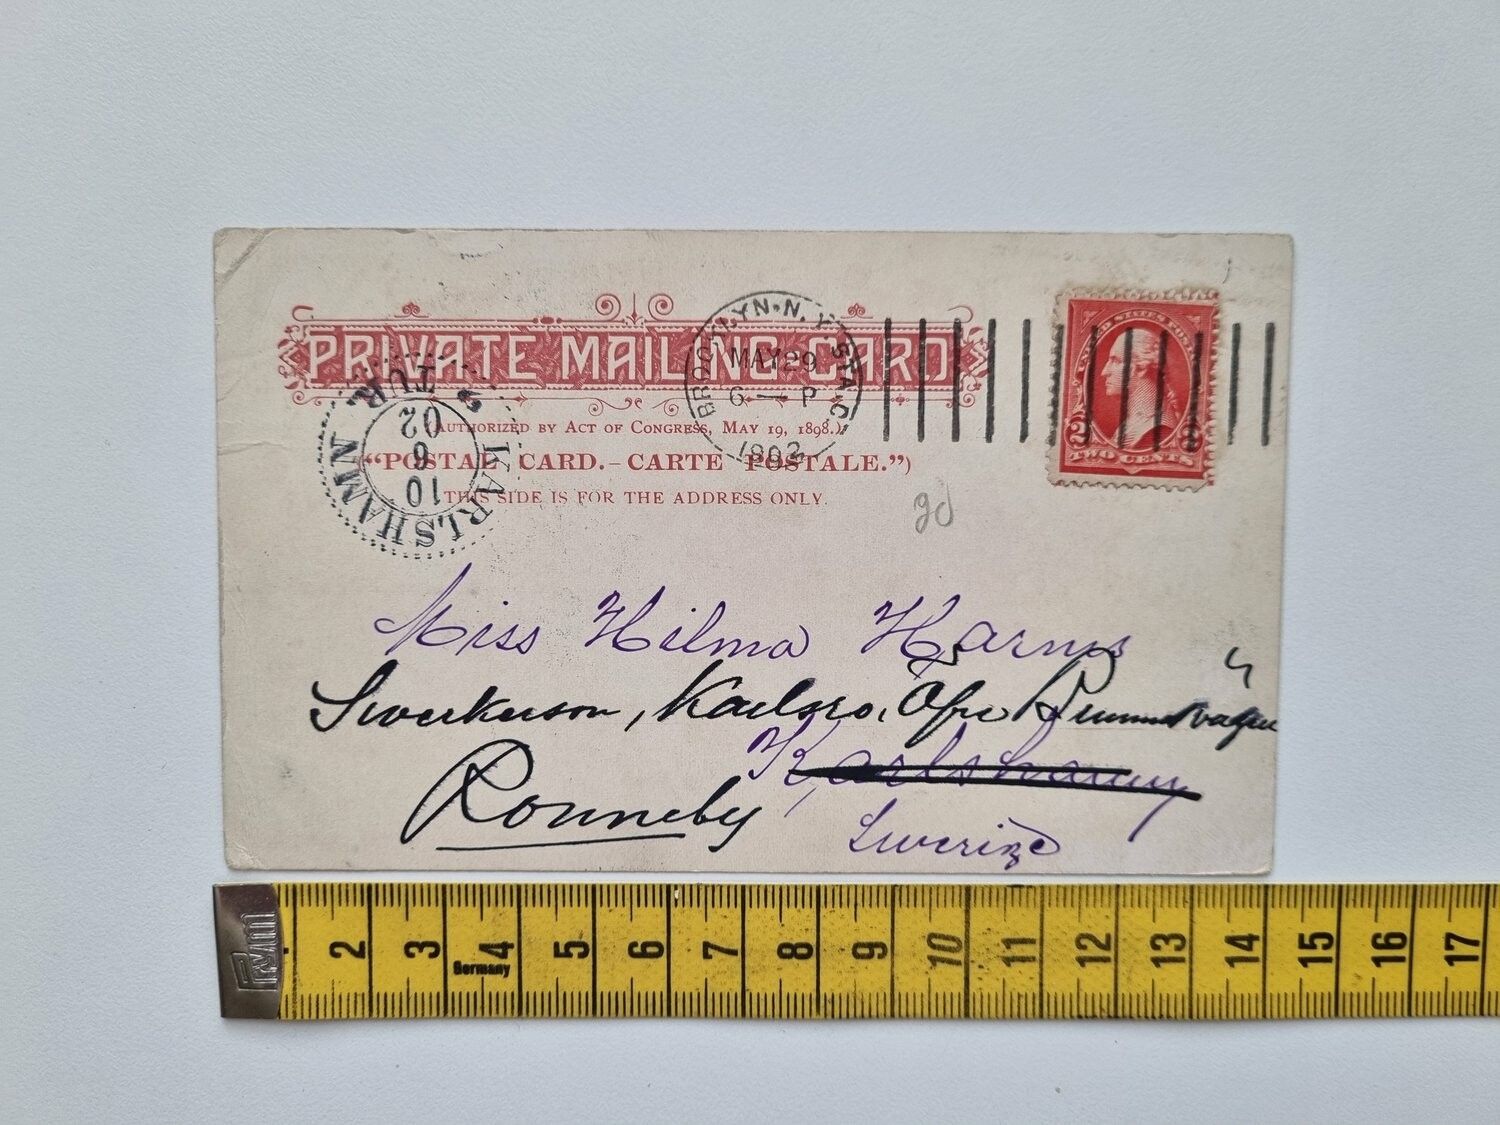 PRIVATE MAILING CARD
(AUTHORIZED BY ACT OF CONGRESS, MAY 19, 1898.)
("POSTAL CARD.-CARTE POSTALE.")
THIS SIDE IS FOR THE ADDRESS ONLY.
BROOKLYN. N. Y. STA. C.
MAY 29
6 — P
1902
UNITED STATES POSTAGE
2 2
TWO CENTS
KARLSHAMN
10
6
02
3 TUR.
Miss Hilma Harms
Karlsro,
Karlshamn
Ronneby
Sverige
Germany
2 3 4 5 6 7 8 9 10 11 12 13 14 15 16 17